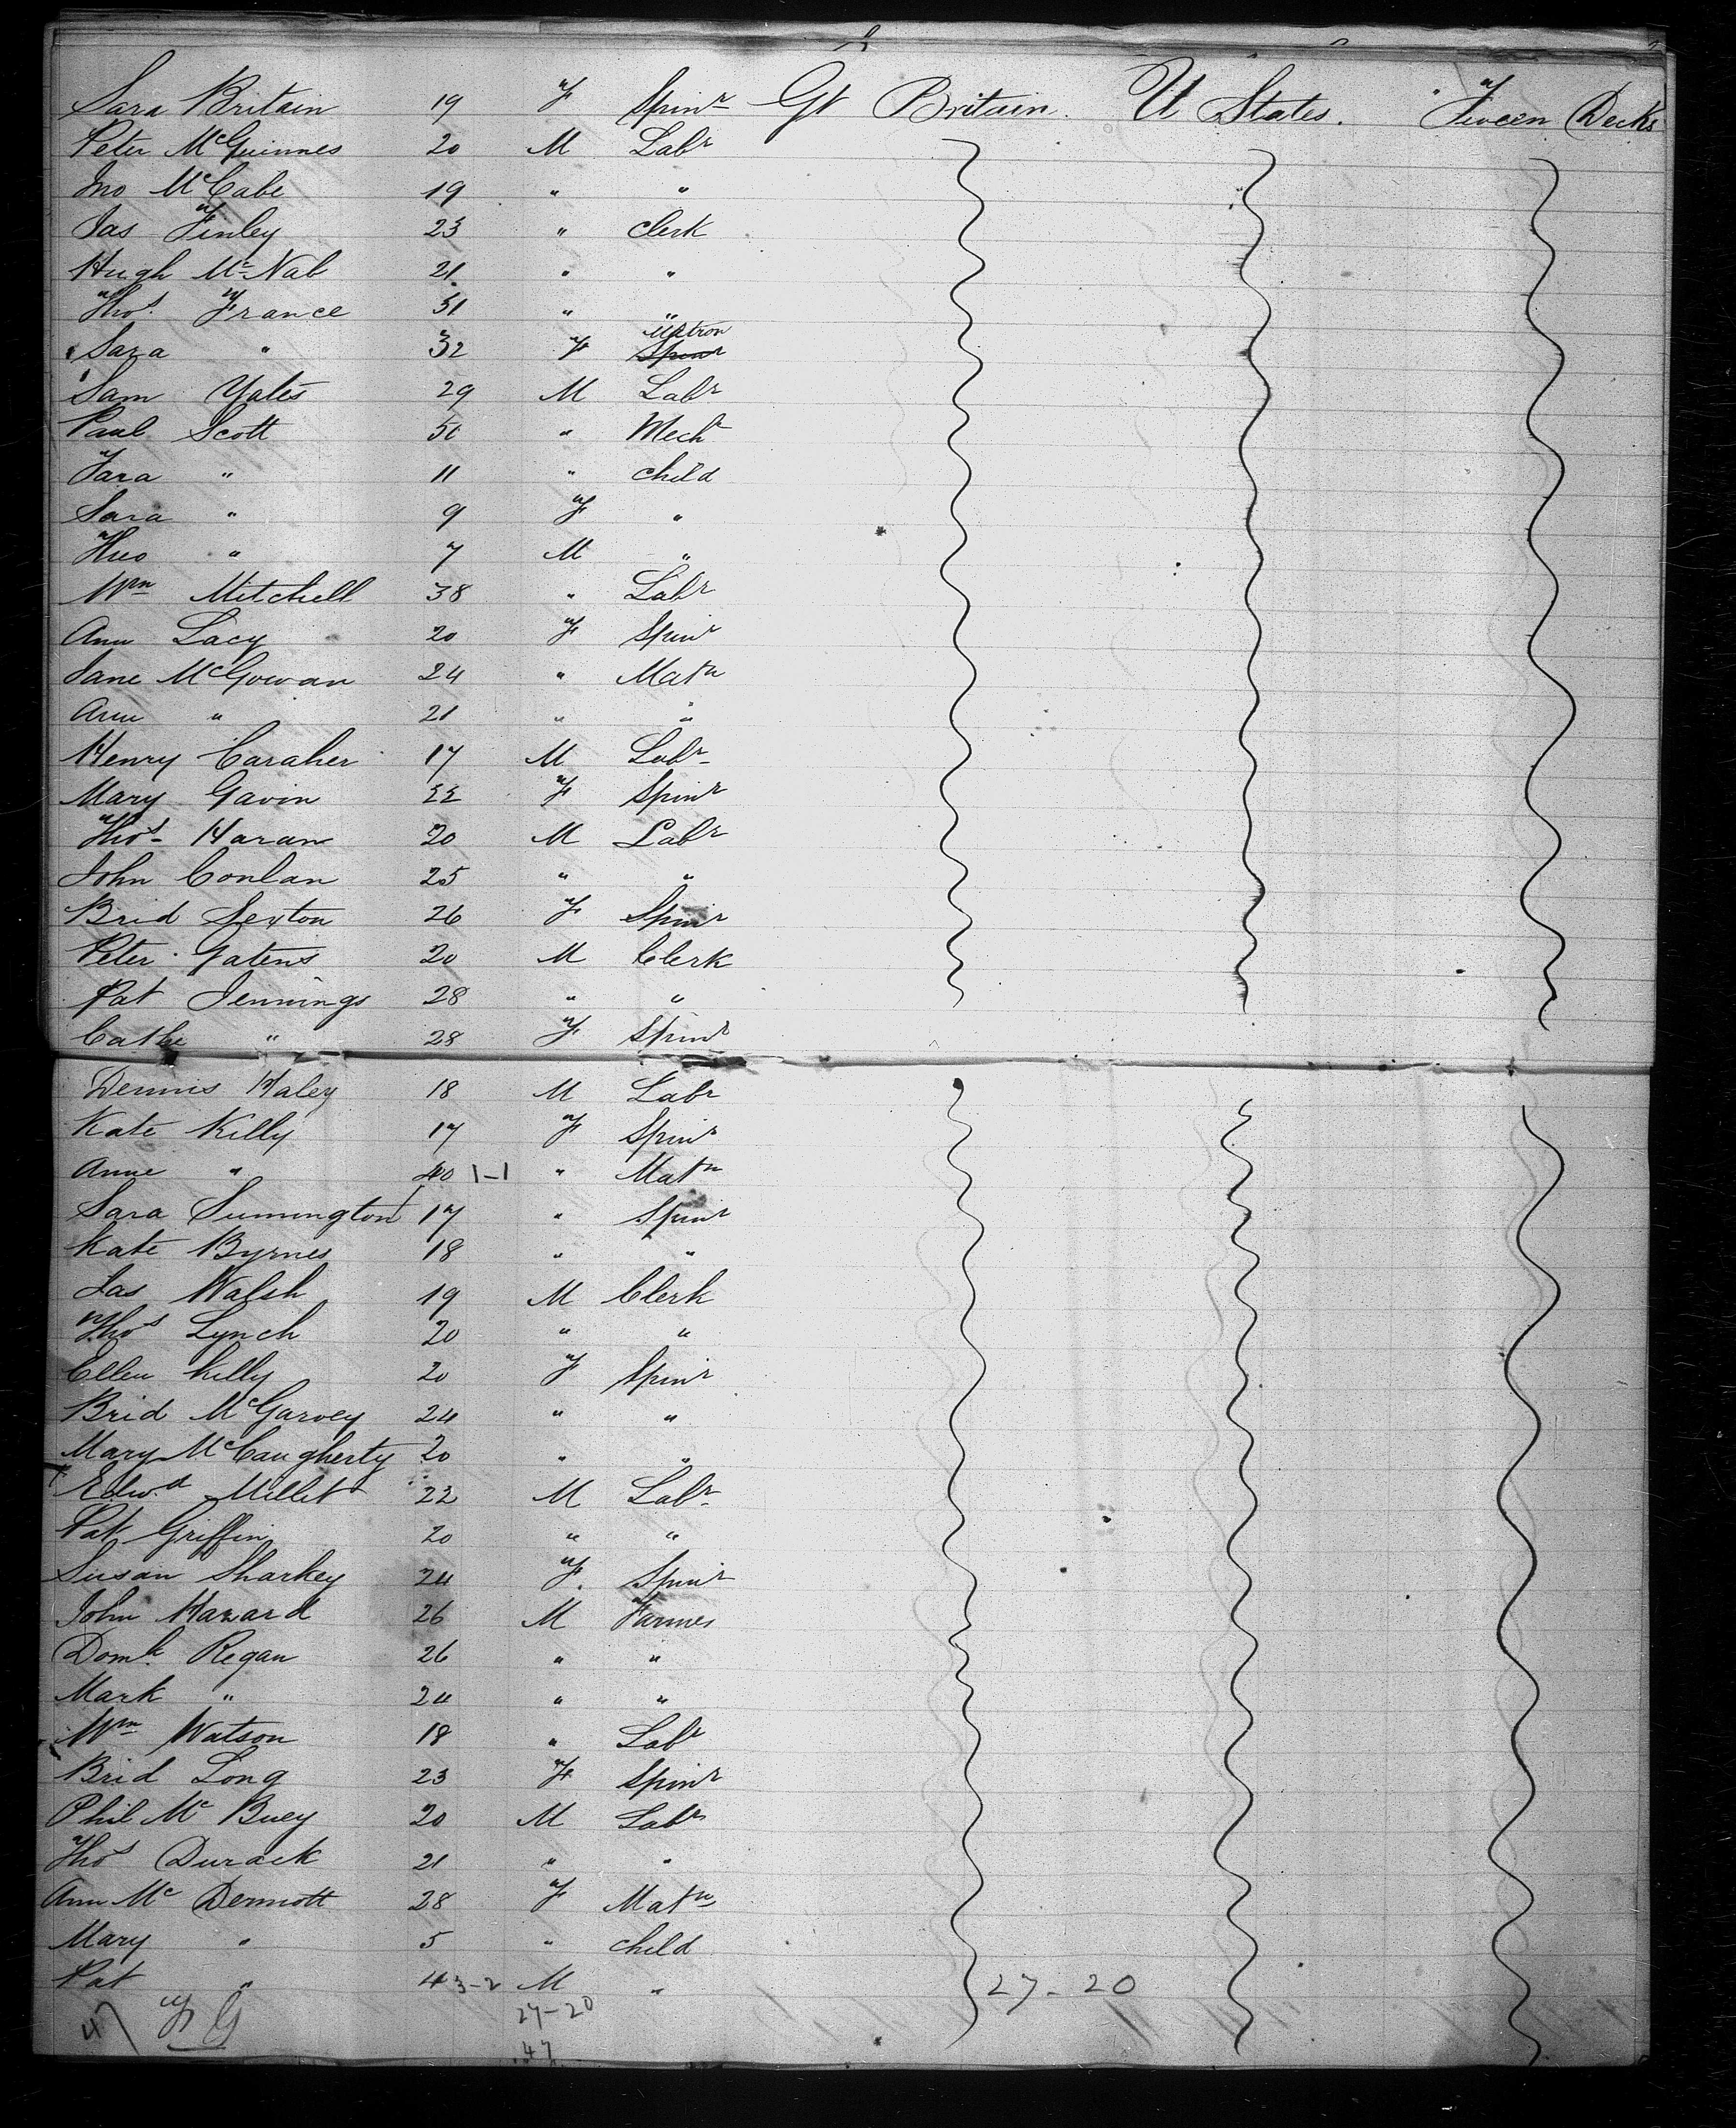 Sara Britain 19 F Spinr Gt Britain. U States. Tween Decks
Peter McGuinnes 20 M Labr
Jno McCabe 19 " "
Jas Finley 23 " Clerk
Hugh McNab 21 " "
Thos. France 31 " "
Sara " 32 F Matron Spinr
Sam Yates 29 M Labr
Paul Scott 50 " Mechc
" 11 " child
Sara " 9 F "
" 7 M "
Wm Mitchell 38 " Labr
Ann Lacy 20 F Spinr
Jane McGowan 24 " Matn
Ann " 21 " "
Henry Caraher 17 M Labr
Mary Gavin 22 F Spinr
Thos Haran 20 M Labr
John Conlan 25 " "
Brid Sexton 26 F Spinr
Peter Gatens 20 M Clerk
Pat Jennings 28 " "
Cathe " 28 F Spinr
Dennis Haley 18 M Labr
Kate Killy 17 F Spinr
Anne " 40 1-1 " Matn
Sara Summington 17 " Spinr
Kate Byrnes 18 " "
Jas Walsh 19 M Clerk
Thos Lynch 20 " "
Ellen Killy 20 F Spinr
Brid McGarvey 24 " "
Mary McCaugherty 20 " "
Edwd Millet 22 M Labr
Pat Griffin 20 " "
Susan Sharkey 24 F. Spinr
John Hazard 26 M Farmer
Domk. Regan 26 " "
Mark " 24 " "
Wm Watson 18 " Labr
Brid Long 23 F Spinr
Phil Mc Buey 20 M Labr
Thos Durack 21 " "
Ann Mc Dermott 28 F Matn
Mary " 5 " child
Pat " 4 3-2 M " 27-20
27-20
47
47